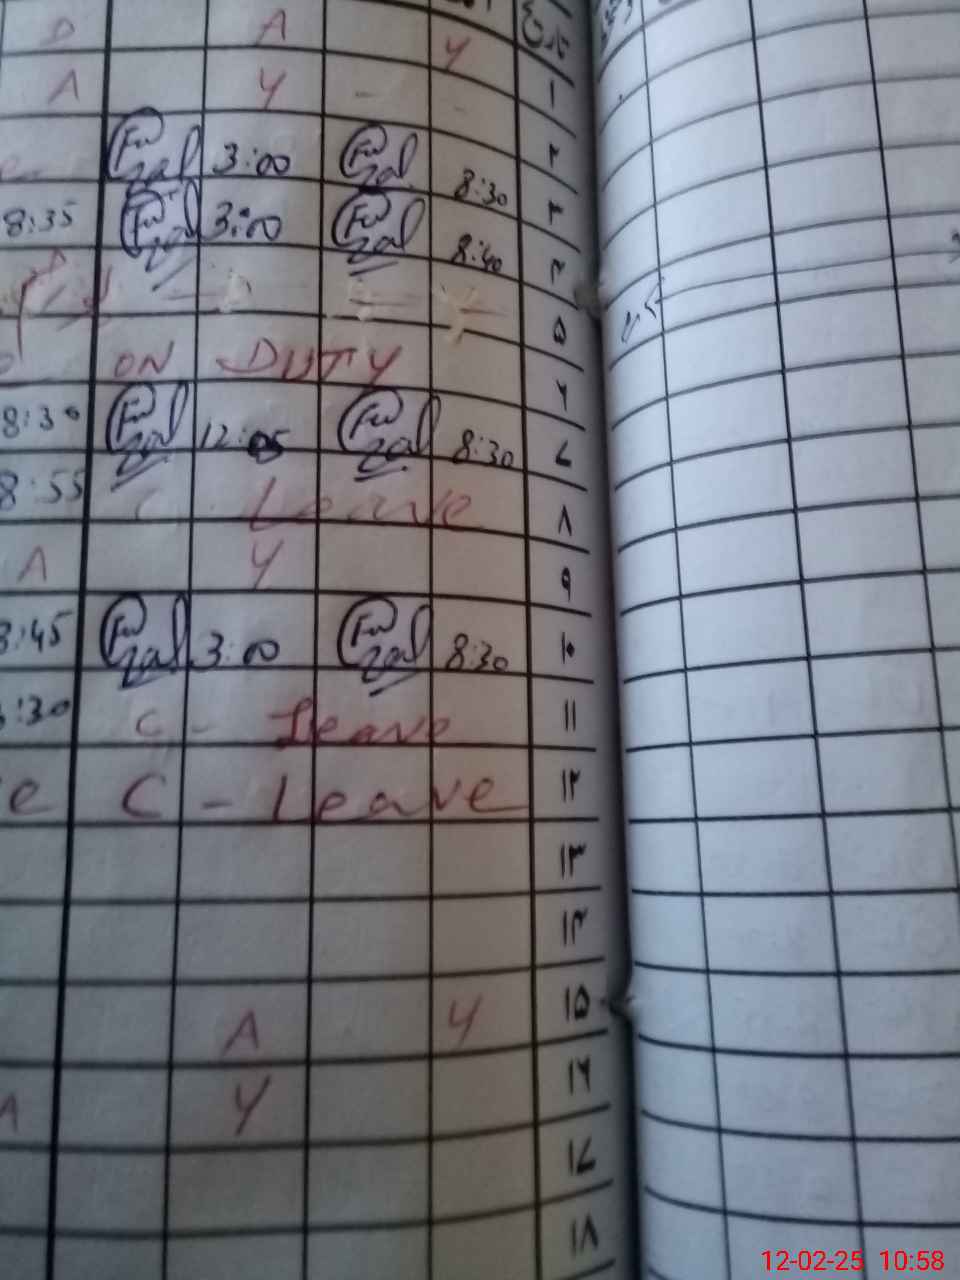 تاریخ
D A Y
A Y ۱
۲
Fw zal 3:00 Fw zal 8:30 ۳
8:35 Fw zal 3:00 Fw zal 8:40 ۴
۵
ON DUTY ۶
8:30 Fw zal 12:05 Fw zal 8:30 ۷
8:55 C Leave ۸
A Y ۹
3:45 Fw zal 3:00 Fw zal 8:30 ۱۰
:30 C - Leave ۱۱
e C - Leave ۱۲
۱۳
۱۴
A Y ۱۵
A Y ۱۶
۱۷
۱۸
12-02-25 10:58